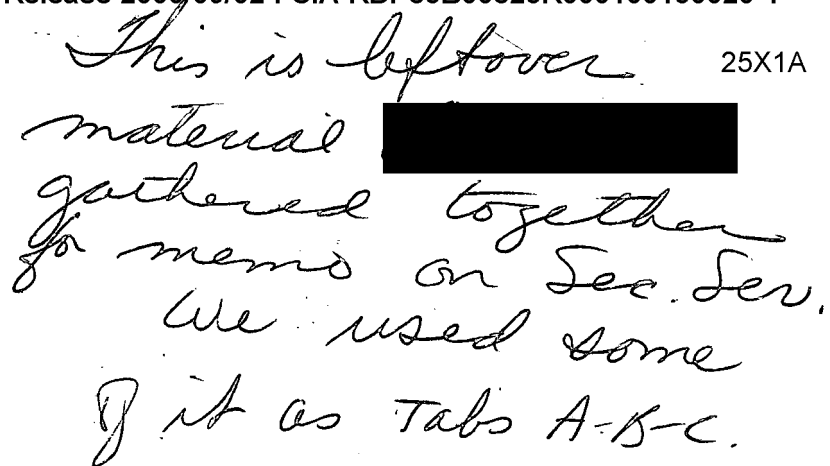 This is leftover 25X1A
material
gathered together
for memo on Sec. Serv.
We used some
of it as Tabs A-B-C.